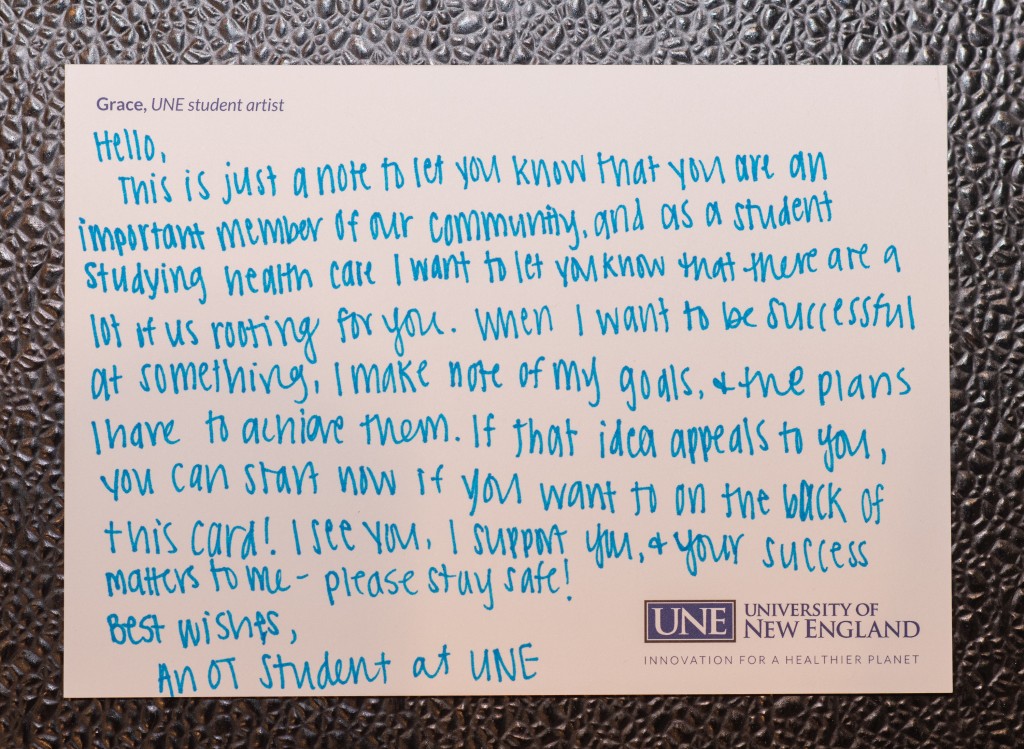 Grace, UNE student artist
Hello,
This is just a note to let you know that you are an
important member of our community, and as a student
studying health care I want to let you know that there are a
lot of us rooting for you. When I want to be successful
at something, I make note of my goals, & the plans
I have to achieve them. If that idea appeals to you,
you can start now if you want to on the back of
this card! I see you, I support you, & your success
matters to me - please stay safe!
Best wishes,
An OT Student at UNE
UNE UNIVERSITY OF
NEW ENGLAND
INNOVATION FOR A HEALTHIER PLANET